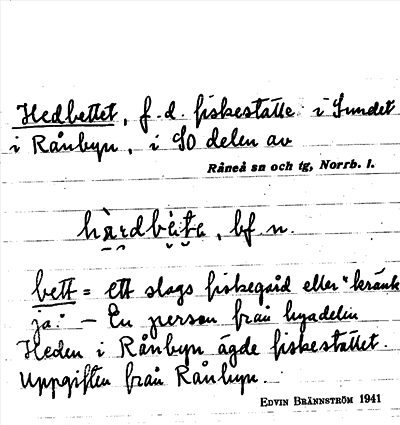 Hedbettet, f.d. fiskeställe i Sundet
i Rånbyn, i SO delen av
Råneå sn och tg, Norrb. l.
bf n.
bett = ett slags fiskegård eller "kränk
ja." – En person från byadelen
Heden i Rånbyn ägde fiskestället.
Uppgiften från Rånbyn.
EDVIN BRÄNNSTRÖM 1941